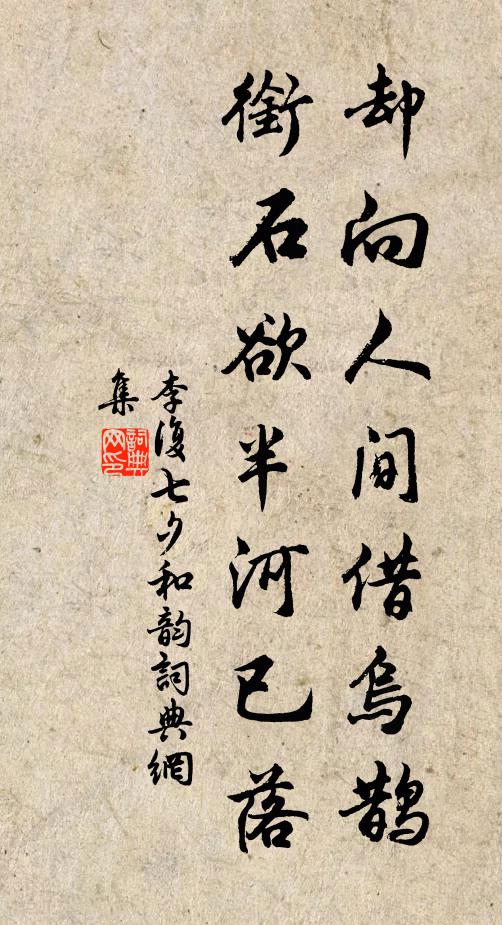 却向人间借乌鹊
銜石欲半河已落
李復七夕和韵詞典網
集
詞典
网印